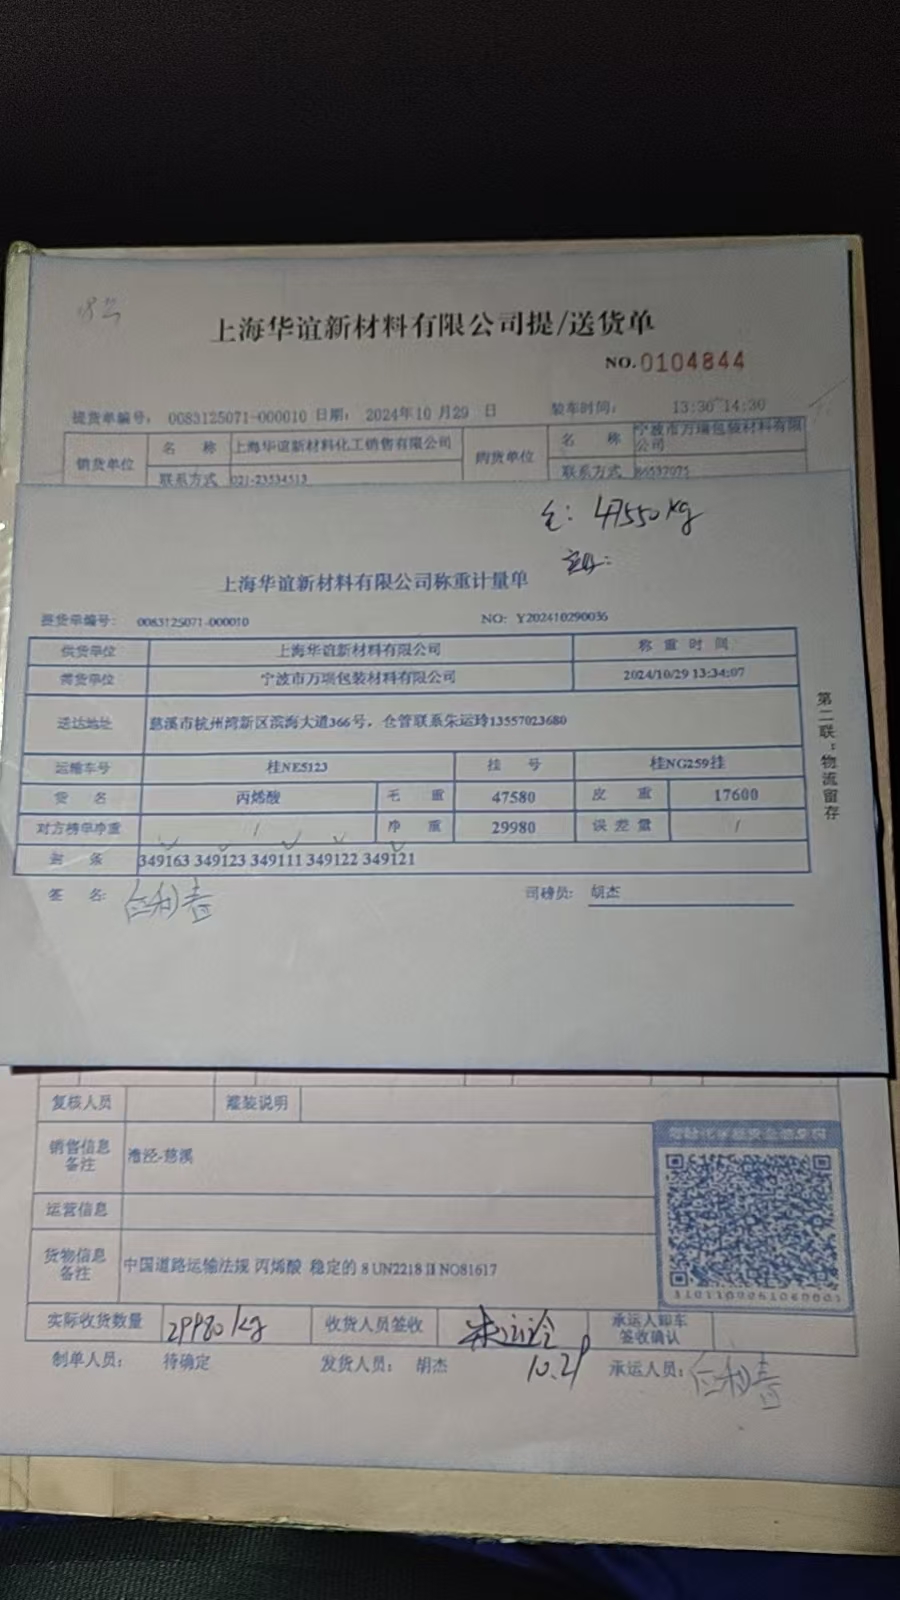 上海华谊新材料有限公司提/送货单
NO.0104844
提货单编号： 0083125071-000010 日期： 2024年10月29 日 装车时间： 13:30~14:30
销货单位 名 称 上海华谊新材料化工销售有限公司 购货单位 名 称 宁波市万瑞包装材料有限公司
联系方式 021-23534513 联系方式 86537075
47550kg
上海华谊新材料有限公司称重计量单
提货单编号： 0083125071-000010 NO: Y202410290036
供货单位 上海华谊新材料有限公司 称 重 时 间
需货单位 宁波市万瑞包装材料有限公司 2024/10/29 13:34:07
送达地址 慈溪市杭州湾新区滨海大道366号，仓管联系朱运玲13557023680
运输车号 桂NE5123 挂 号 桂NG259挂
货 名 丙烯酸 毛 重 47580 皮 重 17600
对方榜单净重 / 净 重 29980 误差量 /
封 条 349163 349123 349111 349122 349121
签 名: 司磅员: 胡杰
第二联：物流留存
复核人员 灌装说明
销售信息备注 漕泾-慈溪
运营信息
货物信息备注 中国道路运输法规 丙烯酸 稳定的 8 UN2218 II NO81617
实际收货数量 29980kg 收货人员签收 朱运玲 承运人卸车签收确认
10.29
制单人员： 待确定 发货人员： 胡杰 承运人员：